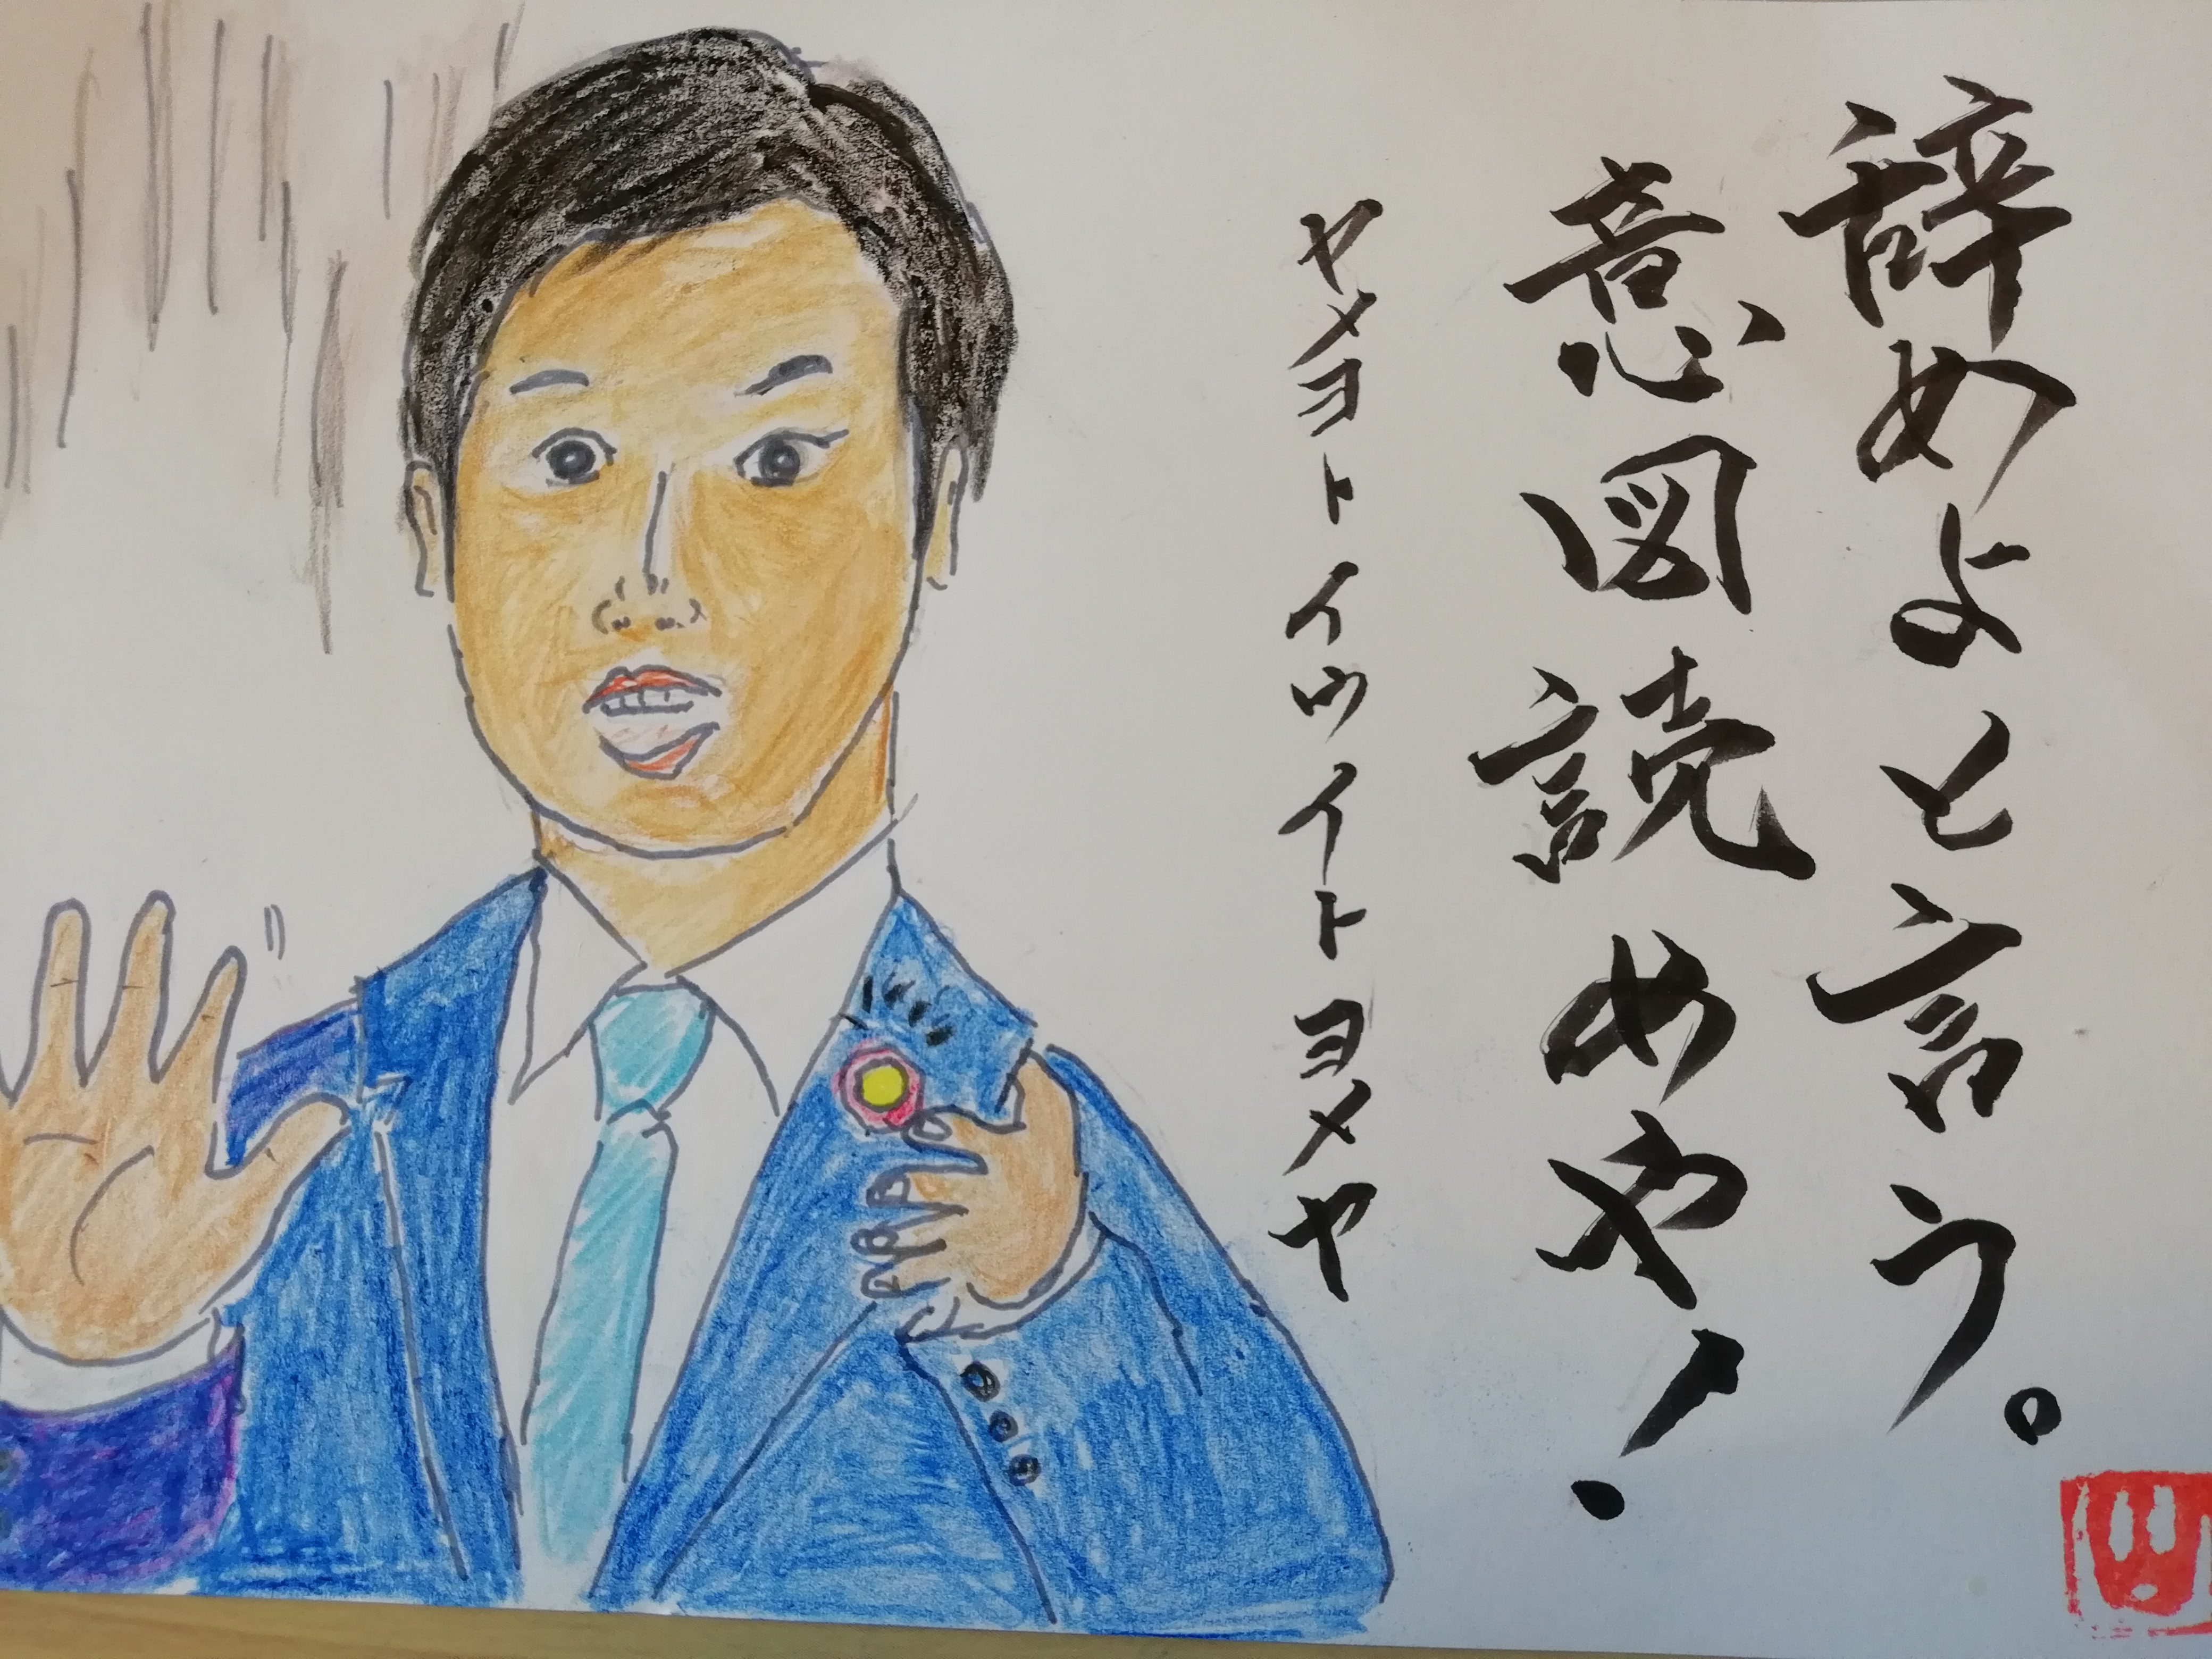 辞めよと言う。
意図読めや!
ヤメヨトイウイトヨメヤ